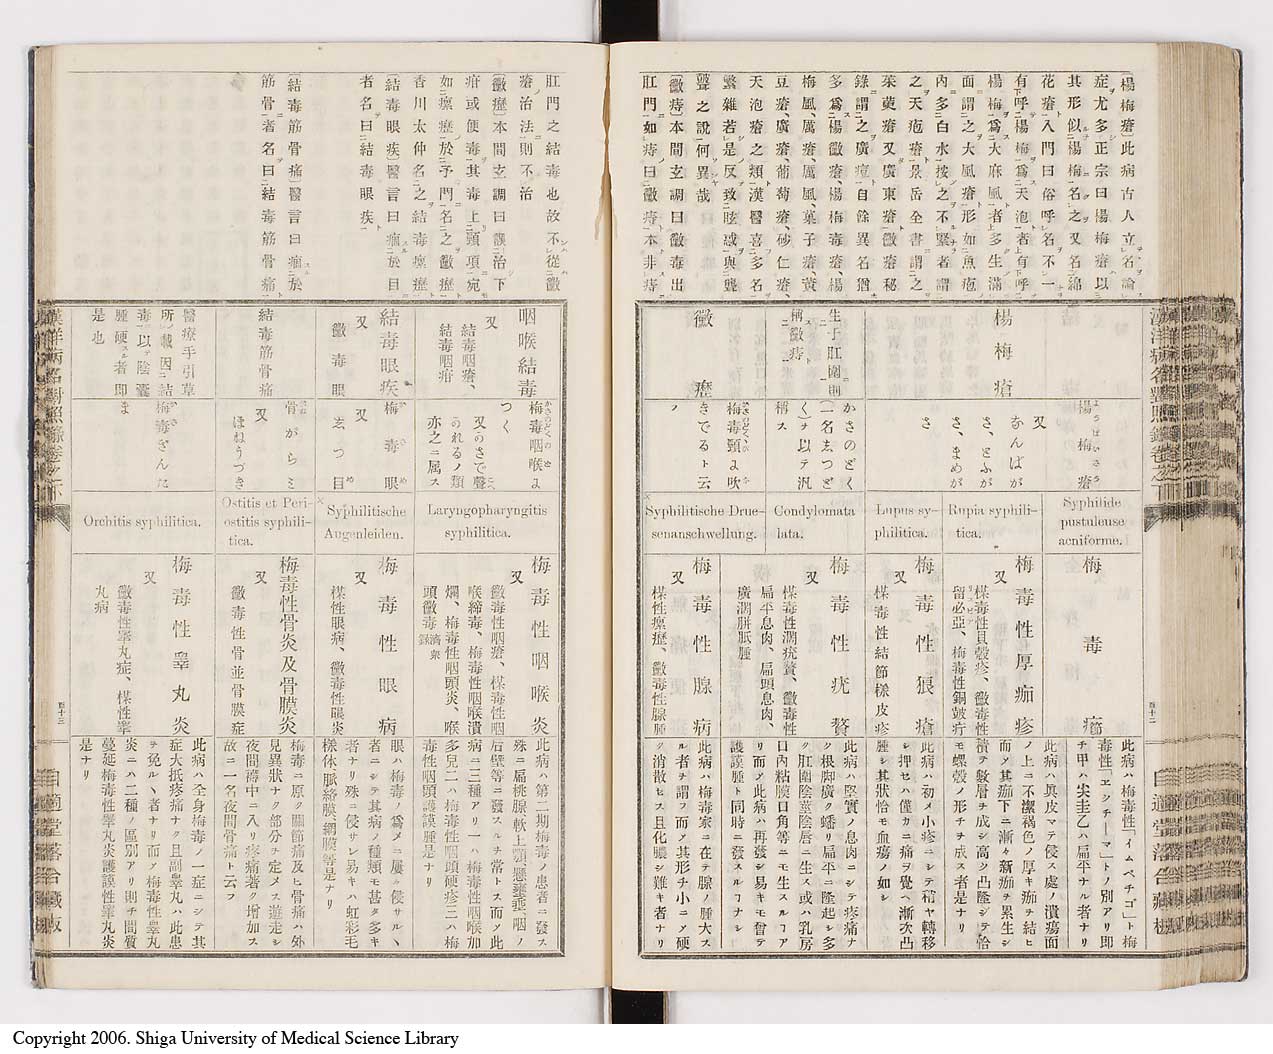 (楊梅瘡)此病古人立名論
症尤多正宗曰楊梅瘡以
其形似楊梅名之又名綿
花瘡入門曰俗呼名不一
有呼楊梅為天泡者有呼
楊梅為大麻風者多生滿
面謂之大風瘡形如魚疱
內多白水按之不緊者謂
之天疱瘡景岳全書謂之
茱萸瘡又廣東瘡黴瘡秘
錄謂之廣痘自餘異名猶
多為楊黴瘡、楊梅毒瘡、楊
梅風、厲瘡、厲風、菓子瘡、黃
豆瘡、廣瘡、葡萄瘡、砂仁瘡、
天泡瘡之類漢醫喜多名
繁雜若是反致眩惑與聾
瞽之說何異哉
(黴痔)本間玄調曰黴毒出
肛門如痔曰黴痔本非痔
楊梅瘡
生于肛圍則
稱黴痔
黴瘡
楊梅瘡
又
なんばが
さ、とふが
さ、まめが
さ
かさのどく
一名ゑつど
く)ナ以テ汎
稱ス
梅毒頸よ吹
きでるト云
フ
Syphilide
pustuleuse
acniforme.
Rupia syphili-
tica.
Lupus sy-
philitica.
Condylomata
lata.
Syphilitische Drue-
senanschwellung.
梅毒痂
梅毒性厚痂疹
又
楳毒性貝殼疹、黴毒性
留必亞、梅毒性銅皷疔
梅毒性狼瘡
又
楳毒性結節樣皮疹
梅毒性疣贅
楳毒性濶疣贅、黴毒性
扁平息肉、扁頭息肉、
廣濶胼胝腫
梅毒性腺病
又
楳性瘰癧、黴毒性腺腫
此病ハ梅毒性「イムペチゴ」ト梅
毒性「エクチーマ」トノ別アリ即
チ甲ハ尖圭乙ハ扁平ナル者ナリ
此病ハ眞皮マテ侵ス處ノ潰瘍面
ノ上ニ不潔褐色ノ厚キ痂チ結ヒ
而メ其痂下ニ漸々新痂チ累生シ
積テ數層チ成シ高ク凸隆シテ恰
モ螺殼ノ形チチ成ス者是ナリ
此病ハ初メ小疹ニシテ稍ヤ轉移
シ押セハ僅カニ痛ヲ覺ヘ漸次凸
腫シ其狀恰モ血瘍ノ如シ
此病ハ堅實ノ息肉ニシテ疼痛ナ
ク根脚廣ク蟠リ扁平ニ隆起シ多
ク肛圍陰莖陰唇ニ生ス或ハ乳房
口內粘膜日角等ニモ生スルコア
リ而メ此病ハ再發シ易キモ曾テ
護謨腫ト同時ニ發スルコナシ
此病ハ梅毒家ニ在テ腺ノ腫大ス
ル者チ謂フ而メ其形チ小ニメ硬
ク消散セス且化膿シ難キ者ナリ
肛門之結毒也故不從黴
瘡治法則不治
(黴癧)本間玄調曰誤治下
疳或便毒其毒上頸項宛
如瘰癧於予門名之黴癧
香川太仲名之結毒瘰癧
(結毒眼疾)醫言曰痼於目
者名曰結毒眼疾
(結毒筋骨痛)醫言曰痼於
筋骨者名曰結毒筋骨痛
咽喉結毒
又
結毒咽瘡、
結毒咽疳
結毒眼疾
又
黴毒眼
結毒筋骨痛
醫療手引草
所載因結
毒以テ陰囊
腫硬スル者即
是也
梅毒咽喉よ
つく
又のさで聲
のれるノ類
亦之ニ属ス
梅毒眼
又
ゑつ目
骨がらミ
又
ほねうづき
梅毒ぎんた
ま
Laryngopharyngitis
syphilitica.
Syphilitische
Augenleiden.
Ostitis et Peri-
ostitis syphili-
tica.
Orchitis syphilitica.
梅毒性咽喉炎
又
黴毒性咽瘡、楳毒性咽
喉締毒、梅毒性咽喉潰
爛、梅毒性咽頭炎、喉
頭黴毒
梅毒性眼病
又
楳性眼病、黴毒性眼炎
梅毒性骨炎及骨膜炎
又
黴毒性骨並骨膜症
梅毒性睾丸炎
又
黴毒性睾丸症、楳性睾
丸病
此病ハ第二期梅毒ノ患者ニ發ス
殊ニ扁桃腺軟上顎、懸壅垂咽ノ
后壁等ニ發スルチ常トス而メ此
病ニ三種アリ一ハ梅毒性咽喉加
多兒二ハ梅毒性咽頭硬疹三ハ梅
毒性咽頭護謨腫是ナリ
眼ハ梅毒ノ爲メニ屢々侵サルヽ
者ニシテ其病ノ種類モ甚タ多キ
者ナリ殊ニ侵サレ易キハ虹彩毛
樣体脈絡膜、網膜等是ナリ
梅毒ニ原ク關節痛及ヒ骨痛ハ外
見異狀ナク部分チ定メス遊走シ
夜間蓐中ニ入リ疼痛著ク增加ス
故ニ一名夜間骨痛ト云フ
此病ハ全身梅毒ノ一症ニシテ其
症大抵疼痛ナク且副睾丸ハ此患
テ免ルヽ者ナリ而メ梅毒性睾丸
炎ニハ二種ノ區別アリ則チ間質
蔓延梅毒性睾丸炎護謨性睾丸炎
是ナリ
Copyright 2006. Shiga University of Medical Science Library